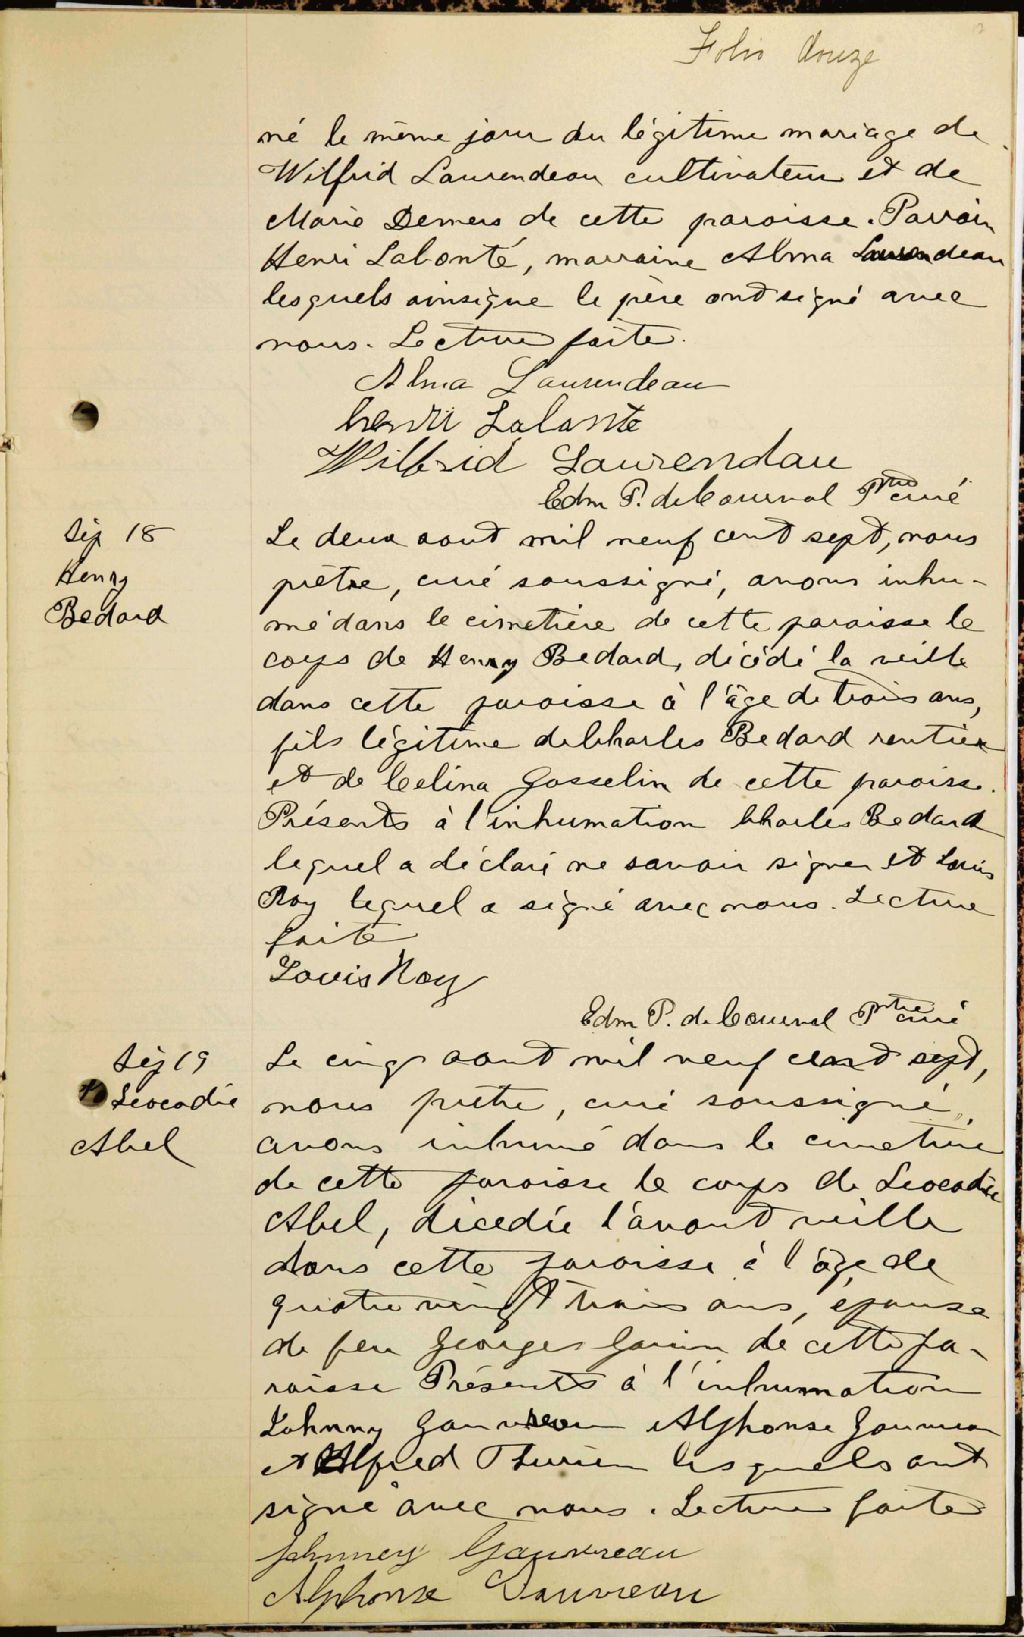 Folio douze
né le même jour du légitime mariage de
Wilfrid Laurendeau cultivateur et de
Marie Demers de cette paroisse. Parrain
Henri Labonté, marraine Alma Laurendeau
lesquels ainsique le père ont signé avec
nous. Lecture faite.
Alma Laurendeau
henri Labonte
Wilfrid Laurendau
Edm P. de Courval Ptre curé
Sép 18
Henry
Bedard
Le deux aout mil neuf cent sept, nous
prêtre, curé soussigné, avons inhu-
mé dans le cimetière de cette paroisse le
corps de Henry Bedard, décédé la veille
dans cette paroisse à l'âge de trois ans,
fils légitime de Charles Bedard rentier
et de Celina Gosselin de cette paroisse.
Présents à l'inhumation Charles Bedard
lequel a déclaré ne savoir signer et Louis
Roy lequel a signé avec nous. Lecture
faite
Louis Roy
Edm P. de Courval Ptre curé
Sép 19
Leocadie
Abel
Le cinq aout mil neuf cent sept,
nous prêtre, curé soussigné,
avons inhumé dans le cimetière
de cette paroisse le corps de Leocadie
Abel, décédée l'avant veille
dans cette paroisse à l'âge de
quatre vingt trois ans, épouse
de feu Georges de cette pa-
roisse Présents à l'inhumation
Johnny Gauvreau Alphonse Gauvreau
et Alfred Therrien lesquels ont
signé avec nous. Lecture faite
Johnney Gauvreau
Alphonse Gauvreau